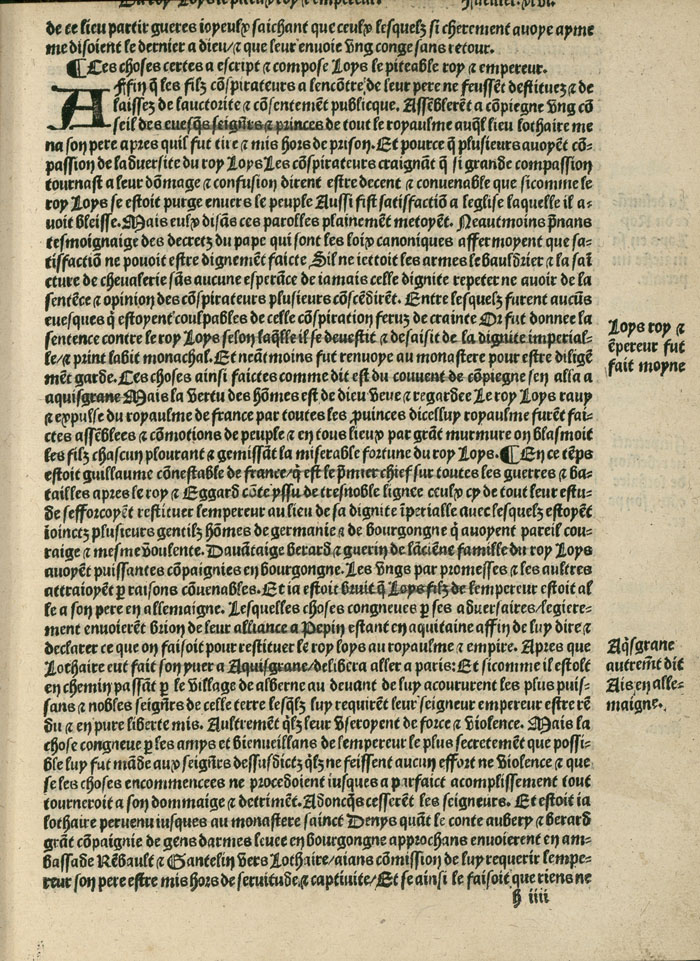 de ce lieu partir gueres ioyeulx saichant que ceulx lesquelz si cherement auoye ayme
me disoient le dernier a dieu/ ⁊ que leur enuoie vng conge sans retour.
¶ Ces choses certes a escript ⁊ compose Loys le piteable roy ⁊ empereur.
Affin q̃ les filz cõspirateurs a lencõtre de leur pere ne feussẽt destituez ⁊ de
laissez de lauctorite ⁊ cõsentement publicque. Assẽblerẽt a cõpiegne vng cõ
seil des euesq̃s seigñrs ⁊ princes de tout le royaulme auq̃l lieu lothaire me
na son pere apres quil fut tire ⁊ mis hors de prison. Et pource q̃ plusieurs auoyẽt cõ-
passion de laduersite du roy Loys Les cõspirateurs craignãt q̃ si grande compassion
tournast a leur dõmage ⁊ confusion dirent estre decent ⁊ conuenable que sicomme le
roy Loys se estoit purge enuers le peuple Aussi fist satisfactiõ a leglise laquelle il a-
uoit bleisse. Mais eulx disãs ces parolles plainemẽt metoyẽt. Neautmoins p̃nans
tesmoignaige des decretz du pape qui sont les loix canoniques affermoyent que sa-
tisfactiõ ne pouoit estre dignemẽt faicte Sil ne iettoit les armes le bauldrier ⁊ la saĩ
cture de cheualerie sãs aucune esperãce de iamais celle dignite repeter ne auoir de la
sentẽce ⁊ opinion des cõspirateurs plusieurs cõscẽdirẽt. Entre lesquelz furent aucũs
euesques q̃ estoyent coulpables de celle cõspiration feruz de crainte Or fut donnee la
sentence contre le roy Loys selon laq̃lle il se deuestit ⁊ desaisit de la dignite imperial-
le/ ⁊ print labit monachal. Et neãtmoins fut renuoye au monastere pour estre diligẽ
mẽt garde. Ces choses ainsi faictes comme dit est du couuent de cõpiegne sen alla a
aquisgrane Mais la vertu des hõmes est de dieu veue ⁊ regardee Le roy Loys rauy
⁊ expulse du royaulme de france par toutes les ꝓuinces dicelluy royaulme furẽt fai-
ctes assẽblees ⁊ cõmotions de peuple ⁊ en tous lieux par grãt murmure on blasmoit
les filz chascun plourant ⁊ gemissãt la miserable fortune du roy Loys. ¶ En ce tẽps
estoit guillaume cõnestable de france/ q̃ est le p̃mier chief sur toutes les guerres ⁊ ba-
tailles apres le roy ⁊ Eggard cõte yssu de tresnoble lignee ceulx cy de tout leur estu-
de sefforcoyẽt restituer lempereur au lieu de sa dignite ĩperialle auec lesquelz estoyẽt
ioinctz plusieurs gentilz hõmes de germanie ⁊ de bourgongne q̃ auoyent pareil cou-
raige ⁊ mesme voulente. Dauãtaige berard ⁊ guerin de lãciẽne famille du roy Loys
auoyẽt puissantes cõpaignies en bourgongne. Les vngs par promesses ⁊ les aultres
attraioyẽt ꝑ raisons cõuenables. Et ia estoit bruit q̃ Loys filz de lempereur estoit al
le a son pere en allemaigne. Lesquelles choses congneues ꝑ ses aduersaires/ legiere-
ment enuoierẽt brion de leur alliance a Pepin estant en aquitaine affin de luy dire ⁊
declarer ce que on faisoit pour restituer le roy loys au royaulme ⁊ empire. Apres que
Lothaire eut fait son yuer a Aquisgrane/ delibera aller a paris: Et sicomme il estoit
en chemin passãt ꝑ le village de alberne au deuant de luy acoururent les plus puis-
sans ⁊ nobles seigñrs de celle terre lesq̃lz luy requirẽt leur seigneur empereur estre rẽ
du ⁊ en pure liberte mis. Aultrement q̃lz leur vseroyent de force ⁊ violence. Mais la
chose congneue ꝑ les amys et bienueillans de lempereur le plus secretement que possi-
ble luy fut mãde aux seigñrs dessusdictz q̃lz ne feissent aucun effort ne violence ⁊ que
se les choses encommencees ne procedoient iusques a parfaict acomplissement tout
tourneroit a son dommaige ⁊ detrimẽt. Adoncq̃s cesserẽt les seigneurs. Et estoit ia
lothaire peruenu iusques au monastere sainct Denys quãt le conte aubery ⁊ berard
grãt cõpaignie de gens darmes leuee en bourgongne approchans enuoierent en am-
bassade Rẽbault ⁊ Gantelin vers Lothaire/ aians cõmission de luy requerir lempe-
reur son pere estre mis hors de seruitude ⁊ captiuite/ Et se ainsi le faisoit que riens ne
h iiii
Loys roy ⁊
ẽpereur fut
fait moyne
Aq̃sgrane
autremẽt dit
Ais en alle-
maigne.